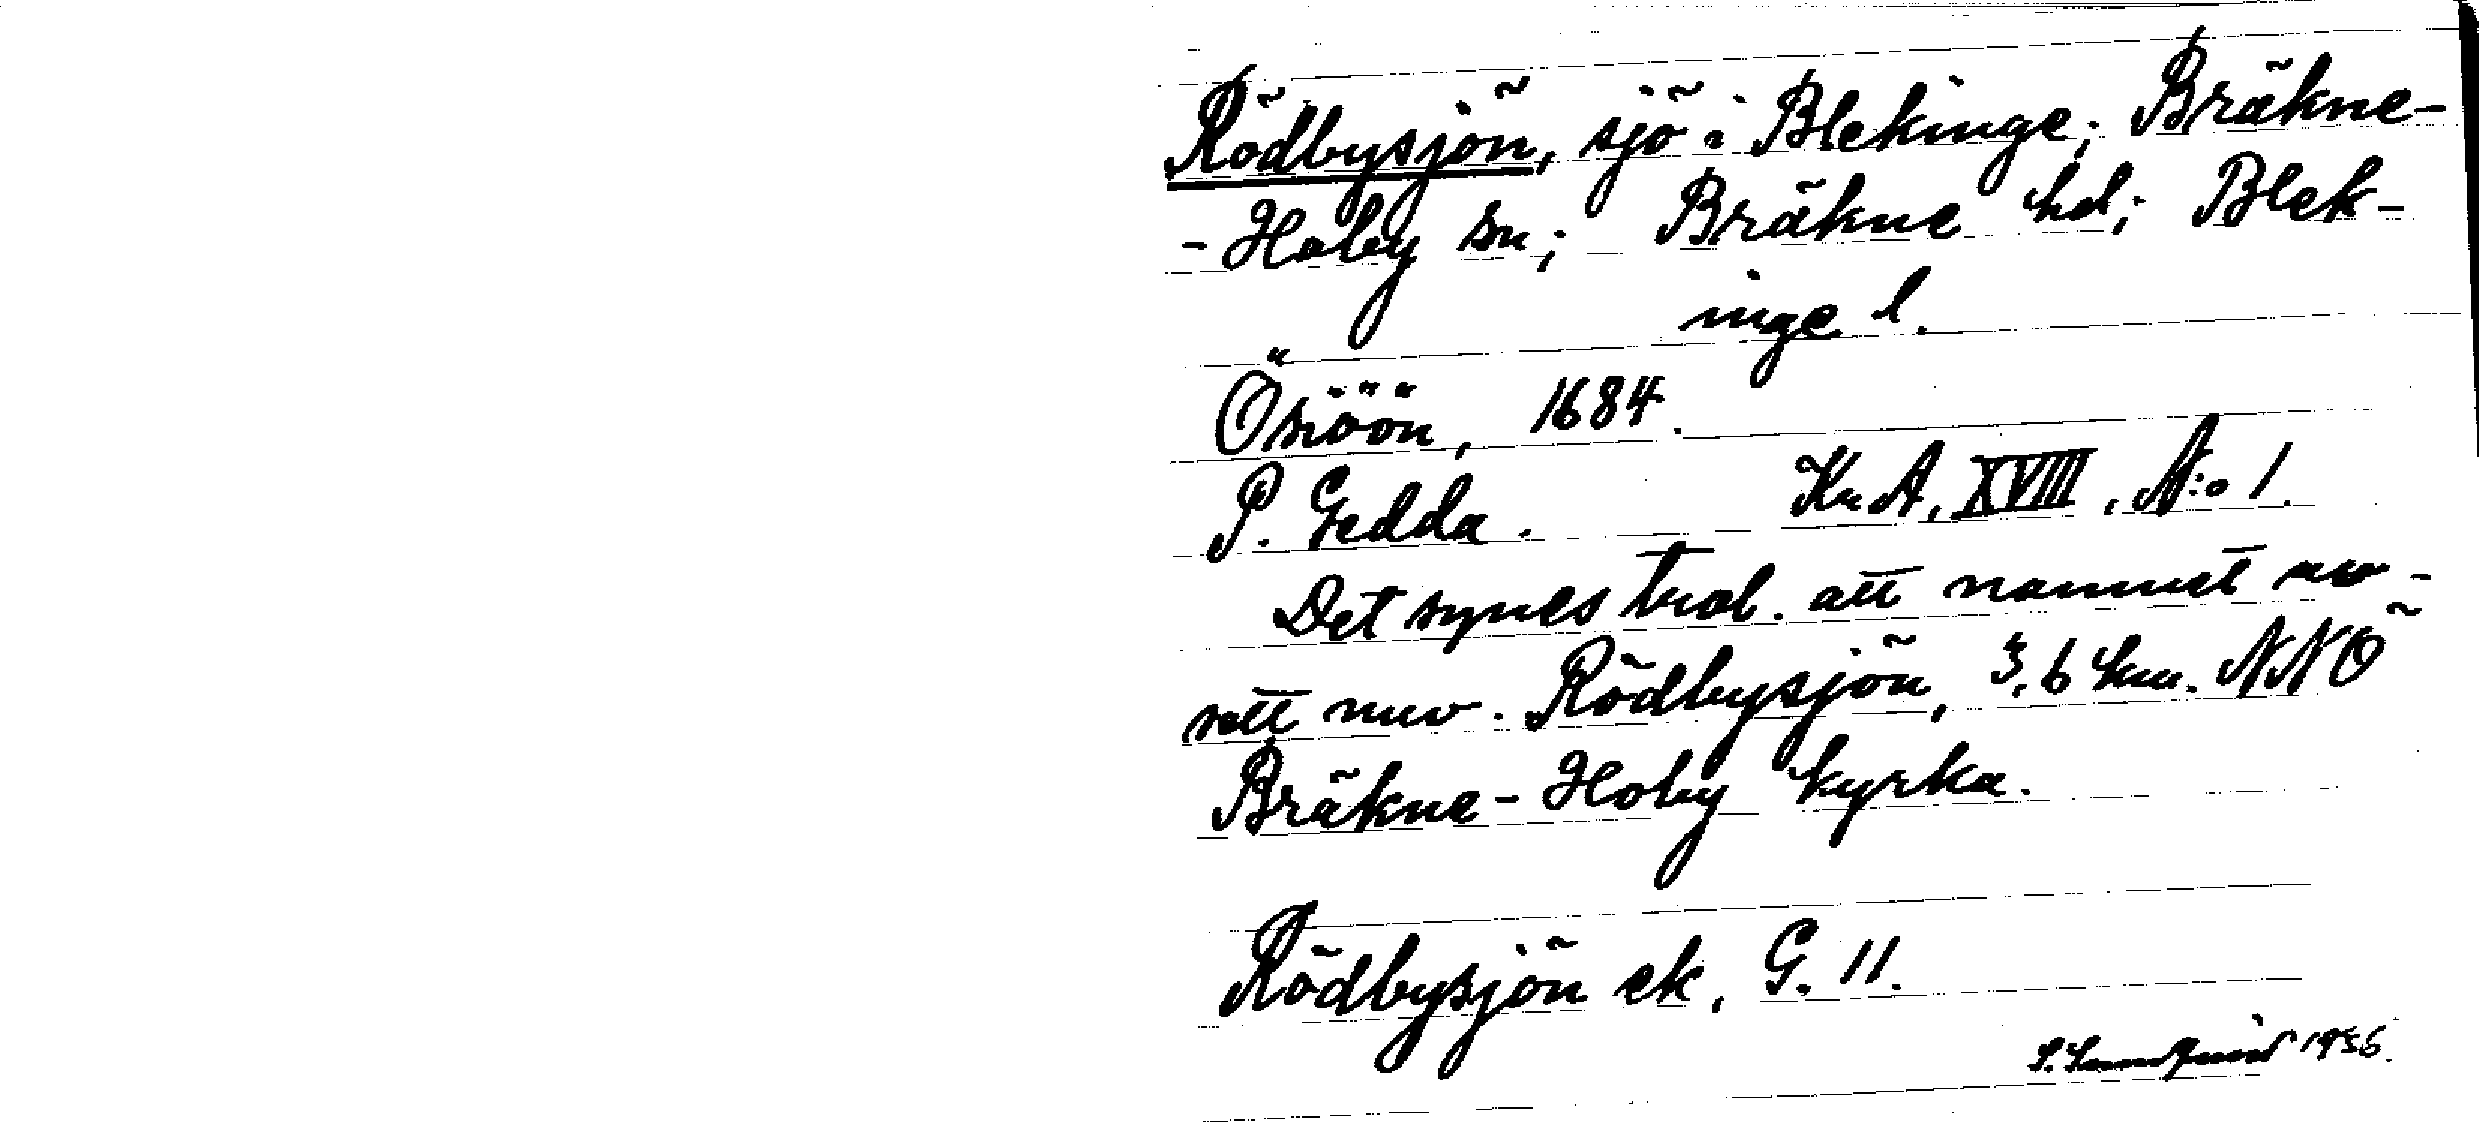 Rödbysjön, sjö i Blekinge; Bräkne-
-Hoby sn; Bräkne hd; Blek-
inge l.
Ösiöön, 1684.
P. Gedda. Kr. A, XVIII, N:o 1.
Det synes trol. att namnet av-
sett nuv. Rödbysjön, 3,6 km. NNÖ
Bräkne-Hoby kyrka.
Rödbysjön ek, G. 11.
1956.